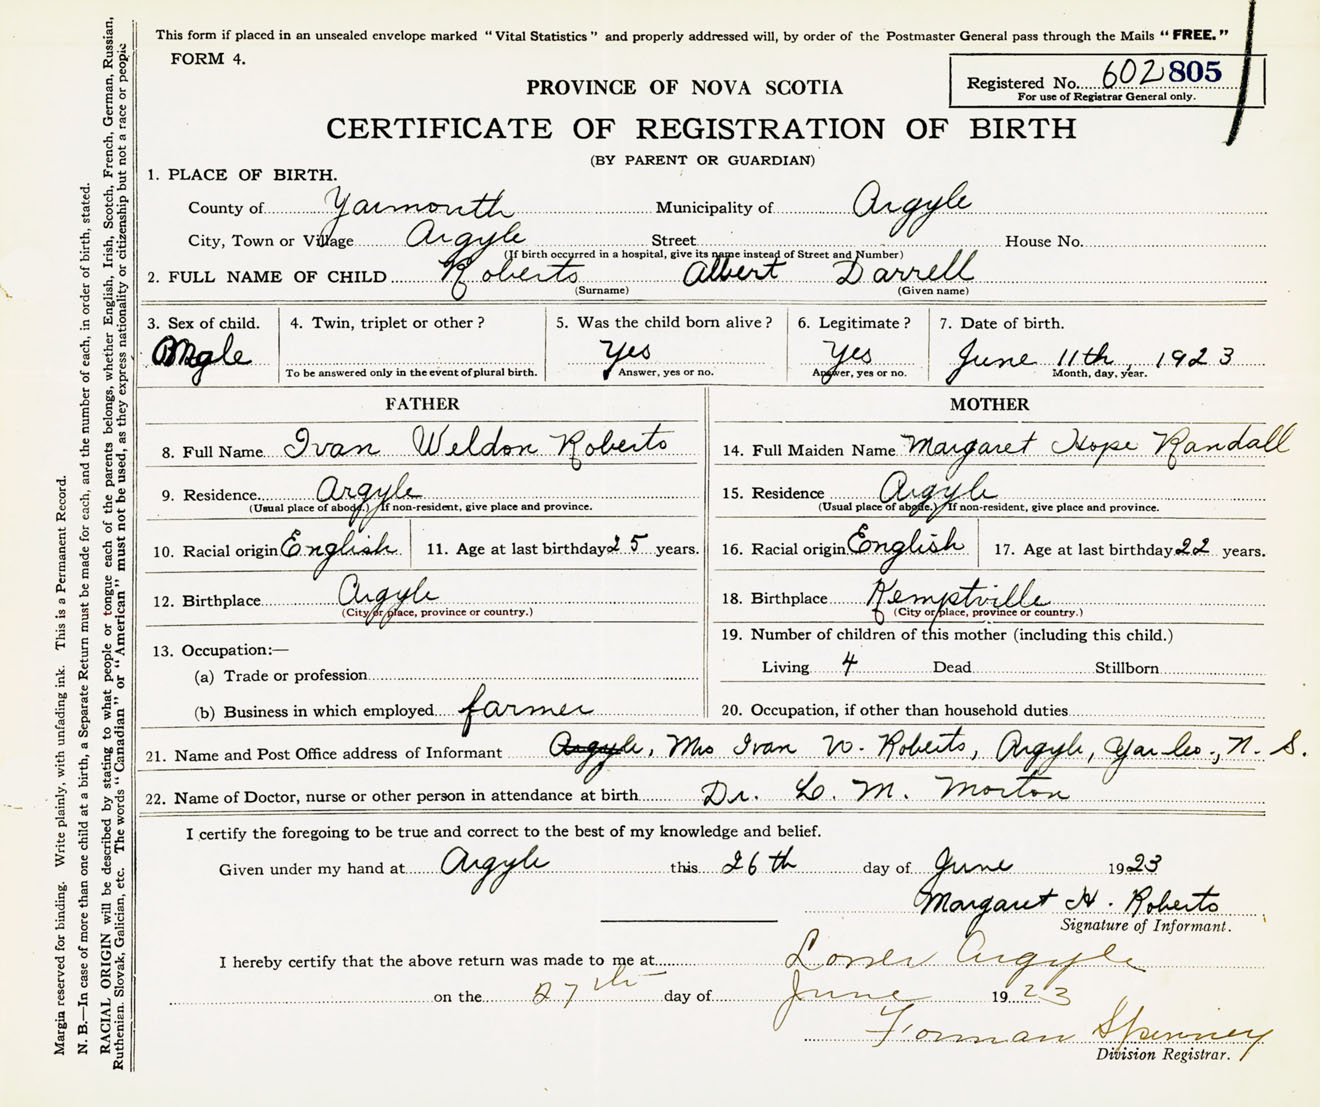 This form if placed in an unsealed envelope marked "Vital Statistics" and properly addressed will, by order of the Postmaster General pass through the Mails "FREE."
FORM 4.
Registered No. 602805
For use of Registrar General only.
PROVINCE OF NOVA SCOTIA
CERTIFICATE OF REGISTRATION OF BIRTH
(BY PARENT OR GUARDIAN)
1. PLACE OF BIRTH.
County of Yarmouth Municipality of Argyle
City, Town or Village Argyle Street House No.
(If birth occurred in a hospital, give its name instead of Street and Number)
2. FULL NAME OF CHILD Roberts Albert Darrell
(Surname) (Given name)
3. Sex of child. 4. Twin, triplet or other? 5. Was the child born alive? 6. Legitimate? 7. Date of birth.
Male Yes Yes June 11th, 1923
To be answered only in the event of plural birth. Answer, yes or no. Answer, yes or no. Month, day, year.
FATHER MOTHER
8. Full Name Ivan Weldon Roberts 14. Full Maiden Name Margaret Hope Randall
9. Residence Argyle 15. Residence Argyle
(Usual place of abode.) If non-resident, give place and province. (Usual place of abode.) If non-resident, give place and province.
10. Racial origin English 11. Age at last birthday 25 years. 16. Racial origin English 17. Age at last birthday 22 years.
12. Birthplace Argyle 18. Birthplace Kemptville
(City or place, province or country.) (City or place, province or country.)
19. Number of children of this mother (including this child.)
13. Occupation:—
Living 4 Dead Stillborn
(a) Trade or profession
(b) Business in which employed farmer 20. Occupation, if other than household duties
21. Name and Post Office address of Informant Argyle, Mrs Ivan W. Roberts, Argyle, Yar. Co., N. S.
22. Name of Doctor, nurse or other person in attendance at birth Dr. L. M. Morton
I certify the foregoing to be true and correct to the best of my knowledge and belief.
Given under my hand at Argyle this 26th day of June 1923
Margaret H. Roberts
Signature of Informant.
I hereby certify that the above return was made to me at Lower Argyle
on the 27th day of June 1923
Forman Spinney
Division Registrar.
Margin reserved for binding. Write plainly, with unfading ink. This is a Permanent Record.
N. B.—In case of more than one child at a birth, a Separate Return must be made for each, and the number of each, in order of birth, stated.
RACIAL ORIGIN will be described by stating to what people or tongue each of the parents belongs, whether English, Irish, Scotch, French, German, Russian,
Ruthenian, Slovak, Galician, etc. The words "Canadian" or "American" must not be used, as they express nationality or citizenship but not a race or people